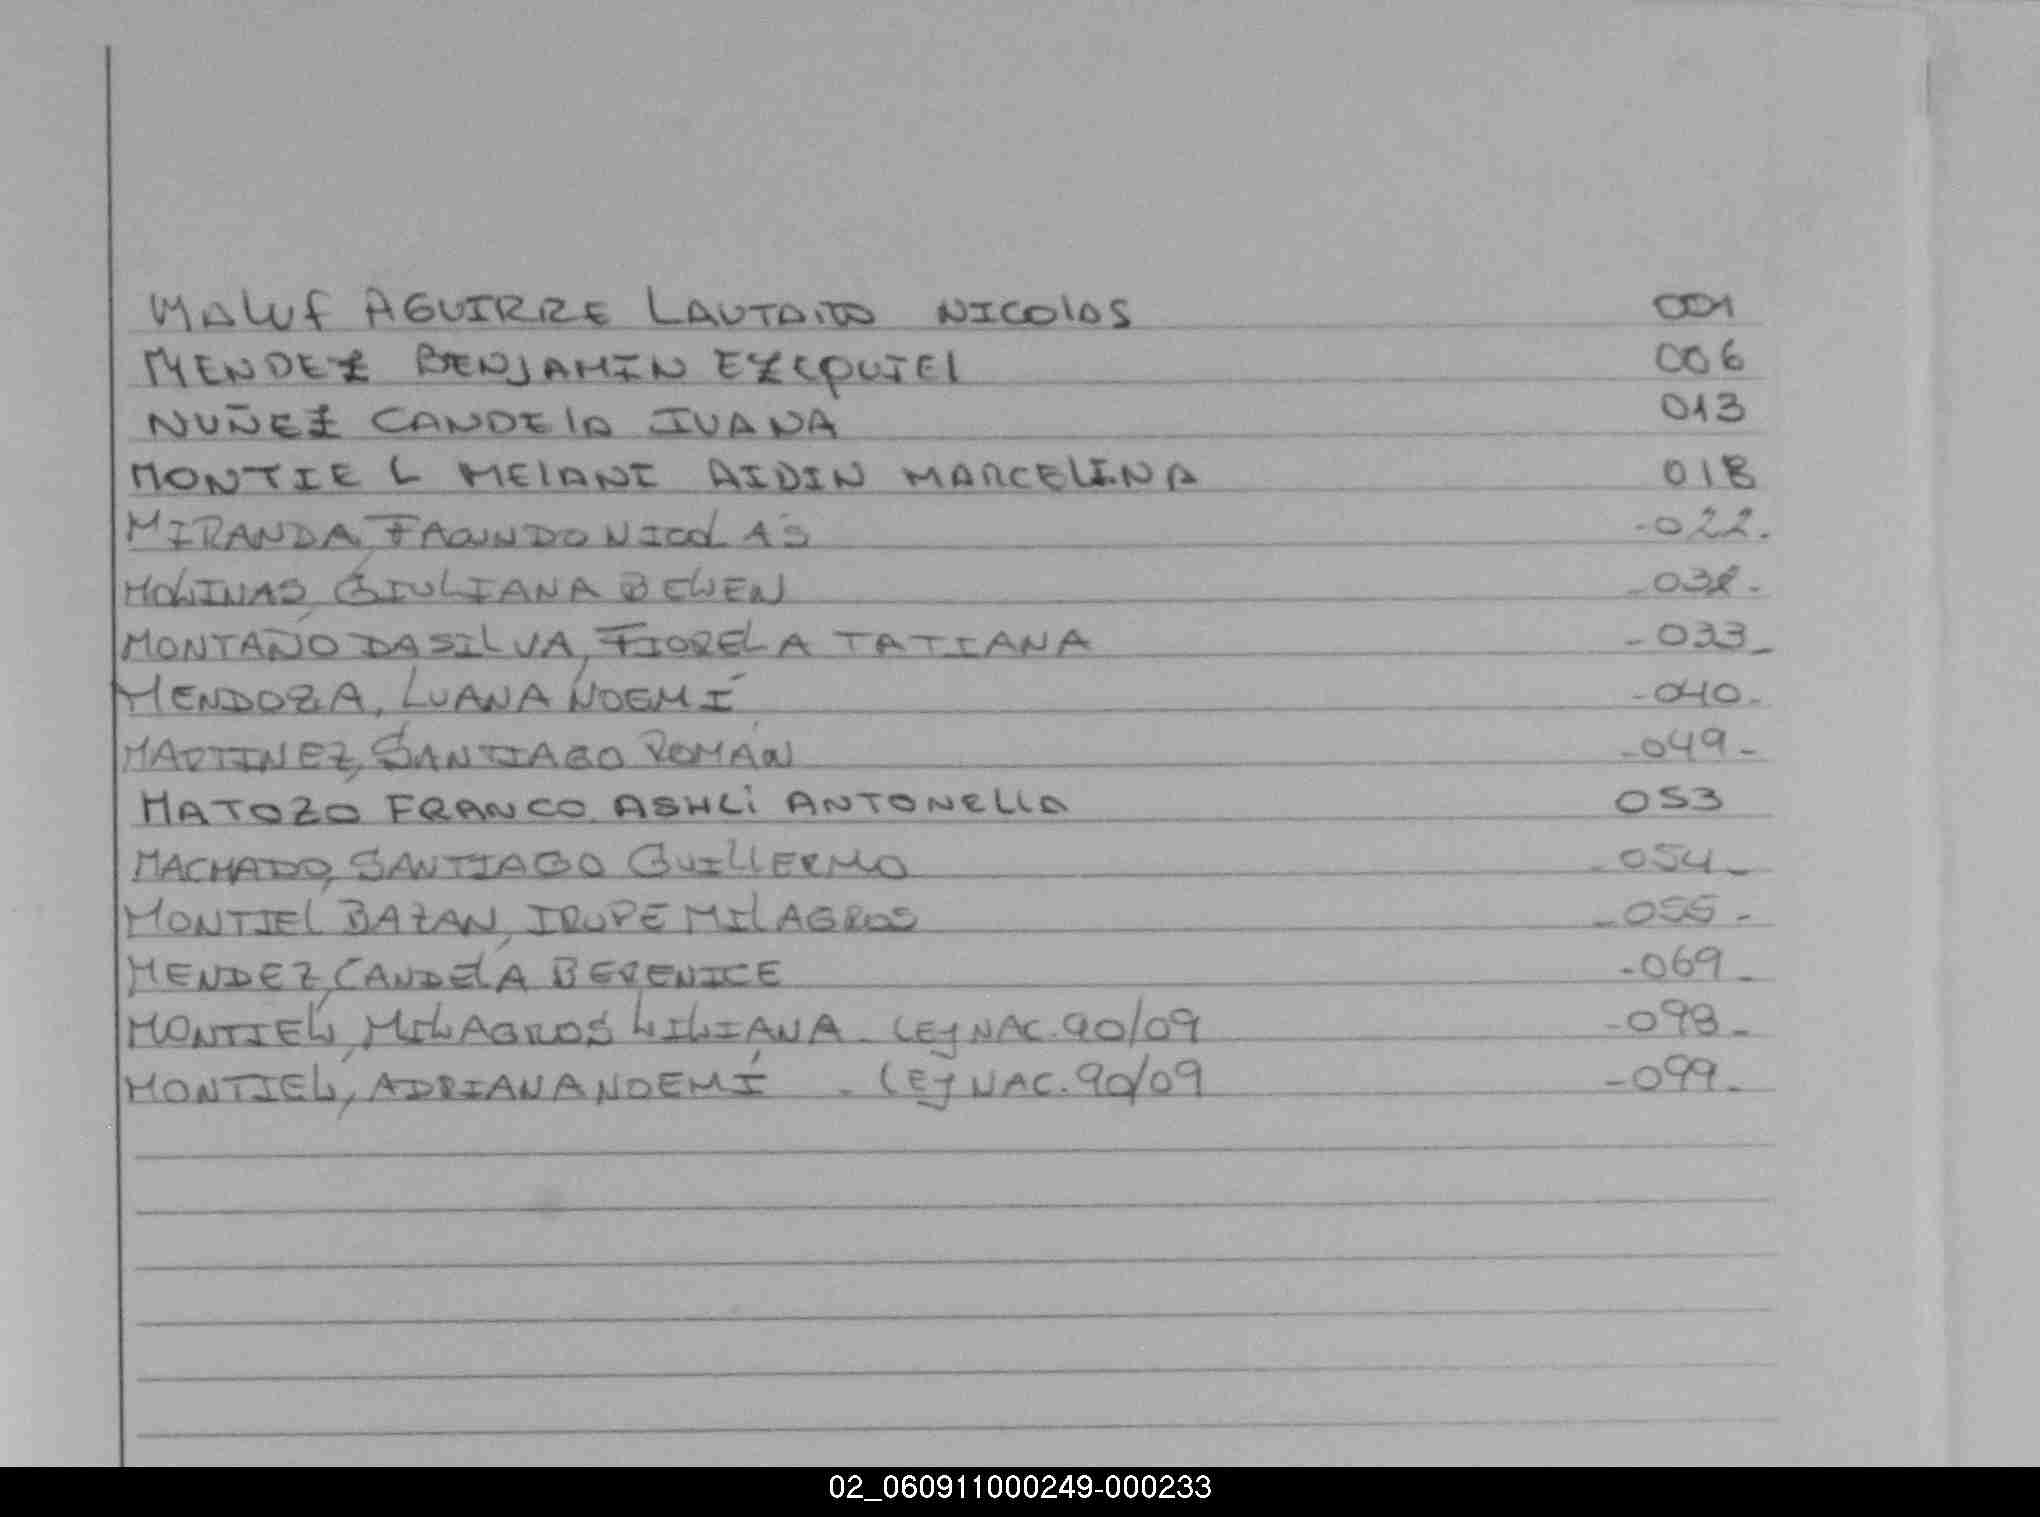 MALUF AGUIRRE LAUTARO NICOLAS 001
MENDEZ BENJAMIN EZEQUIEL 006
NUÑEZ CANDELA IVANA 013
MONTIEL MELANI AIDIN MARCELINA 018
MIRANDA, FACUNDO NICOLÁS -022.
MOLINAS, GIULIANA BELEN -032-
MONTAÑO DASILVA, FIORELA TATIANA -033-
MENDOZA, LUANA NOEMÍ -040-
MARTINEZ, SANTIAGO ROMÁN -049-
MATOZO FRANCO ASHLI ANTONELLA 053
MACHADO, SANTIAGO GUILLERMO -054-
MONTIEL BAZAN, IRUPE MILAGROS -055-
MENDEZ, CANDELA BERENICE -069-
MONTIEL, MILAGROS LILIANA - LEY NAC. 90/09 -098-
MONTIEL, ADRIANA NOEMÍ - LEY NAC. 90/09 -099-
02_060911000249-000233